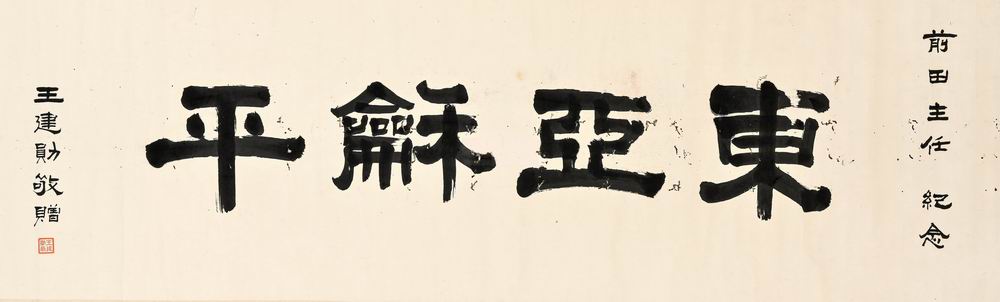 前田主任 紀念
東亞龢平
王建勛敬贈